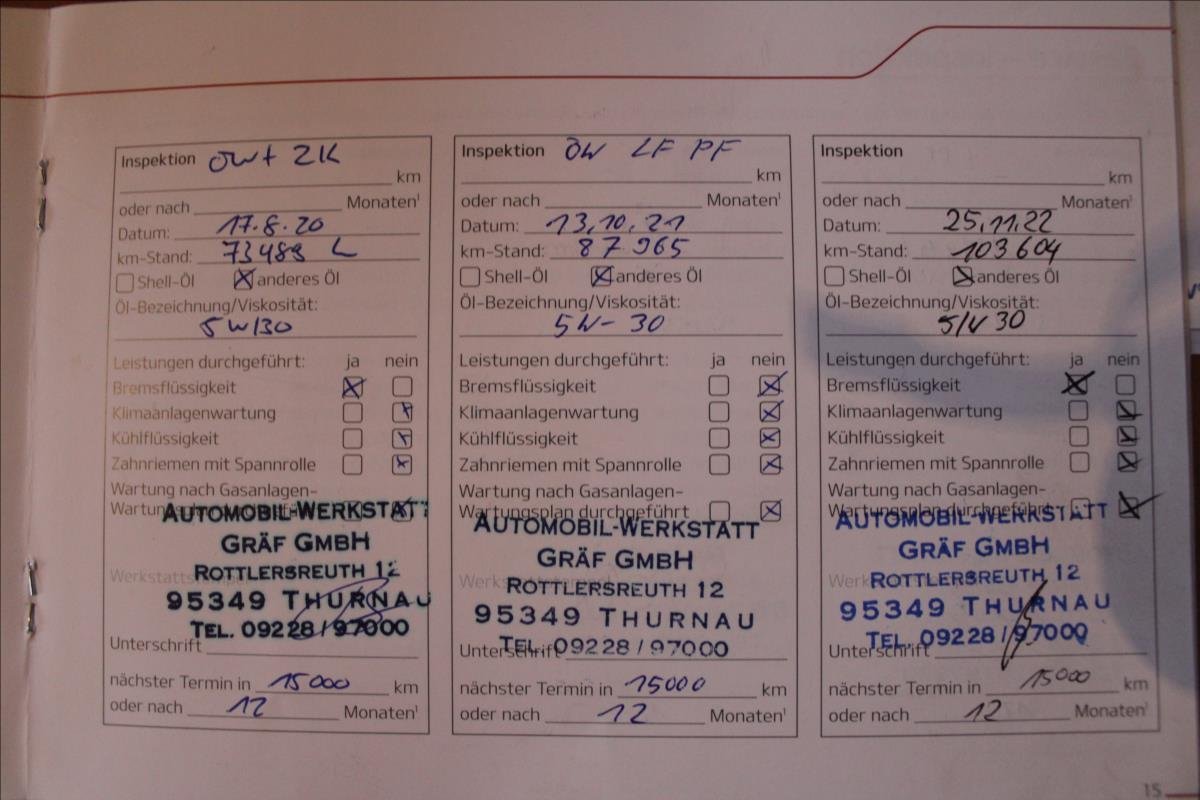 Inspektion ÖW+ ZK
km
oder nach Monaten¹
Datum: 17.8.20
km-Stand: 73489 L
Shell-Öl anderes Öl
Öl-Bezeichnung/Viskosität:
5W/30
Leistungen durchgeführt: ja nein
Bremsflüssigkeit
Klimaanlagenwartung
Kühlflüssigkeit
Zahnriemen mit Spannrolle
Wartung nach Gasanlagen-
AUTOMOBIL-WERKSTATT
GRÄF GMBH
ROTTLERSREUTH 12
95349 THURNAU
TEL. 09228/97000
Unterschrift
nächster Termin in 15000 km
oder nach 12 Monaten¹
Inspektion ÖW LF PF
km
oder nach Monaten¹
Datum: 13.10.21
km-Stand: 87965
Shell-Öl anderes Öl
Öl-Bezeichnung/Viskosität:
5W-30
Leistungen durchgeführt: ja nein
Bremsflüssigkeit
Klimaanlagenwartung
Kühlflüssigkeit
Zahnriemen mit Spannrolle
Wartung nach Gasanlagen-
Wartungsplan durchgeführt
AUTOMOBIL-WERKSTATT
GRÄF GMBH
ROTTLERSREUTH 12
95349 THURNAU
TEL. 09228/97000
Unterschrift
nächster Termin in 15000 km
oder nach 12 Monaten¹
Inspektion
km
oder nach Monaten¹
Datum: 25.11.22
km-Stand: 103604
Shell-Öl anderes Öl
Öl-Bezeichnung/Viskosität:
5W30
Leistungen durchgeführt: ja nein
Bremsflüssigkeit
Klimaanlagenwartung
Kühlflüssigkeit
Zahnriemen mit Spannrolle
Wartung nach Gasanlagen-
Wartungsplan durchgeführt
AUTOMOBIL-WERKSTATT
GRÄF GMBH
ROTTLERSREUTH 12
95349 THURNAU
TEL. 09228/97000
Unterschrift
nächster Termin in 15000 km
oder nach 12 Monaten¹
15